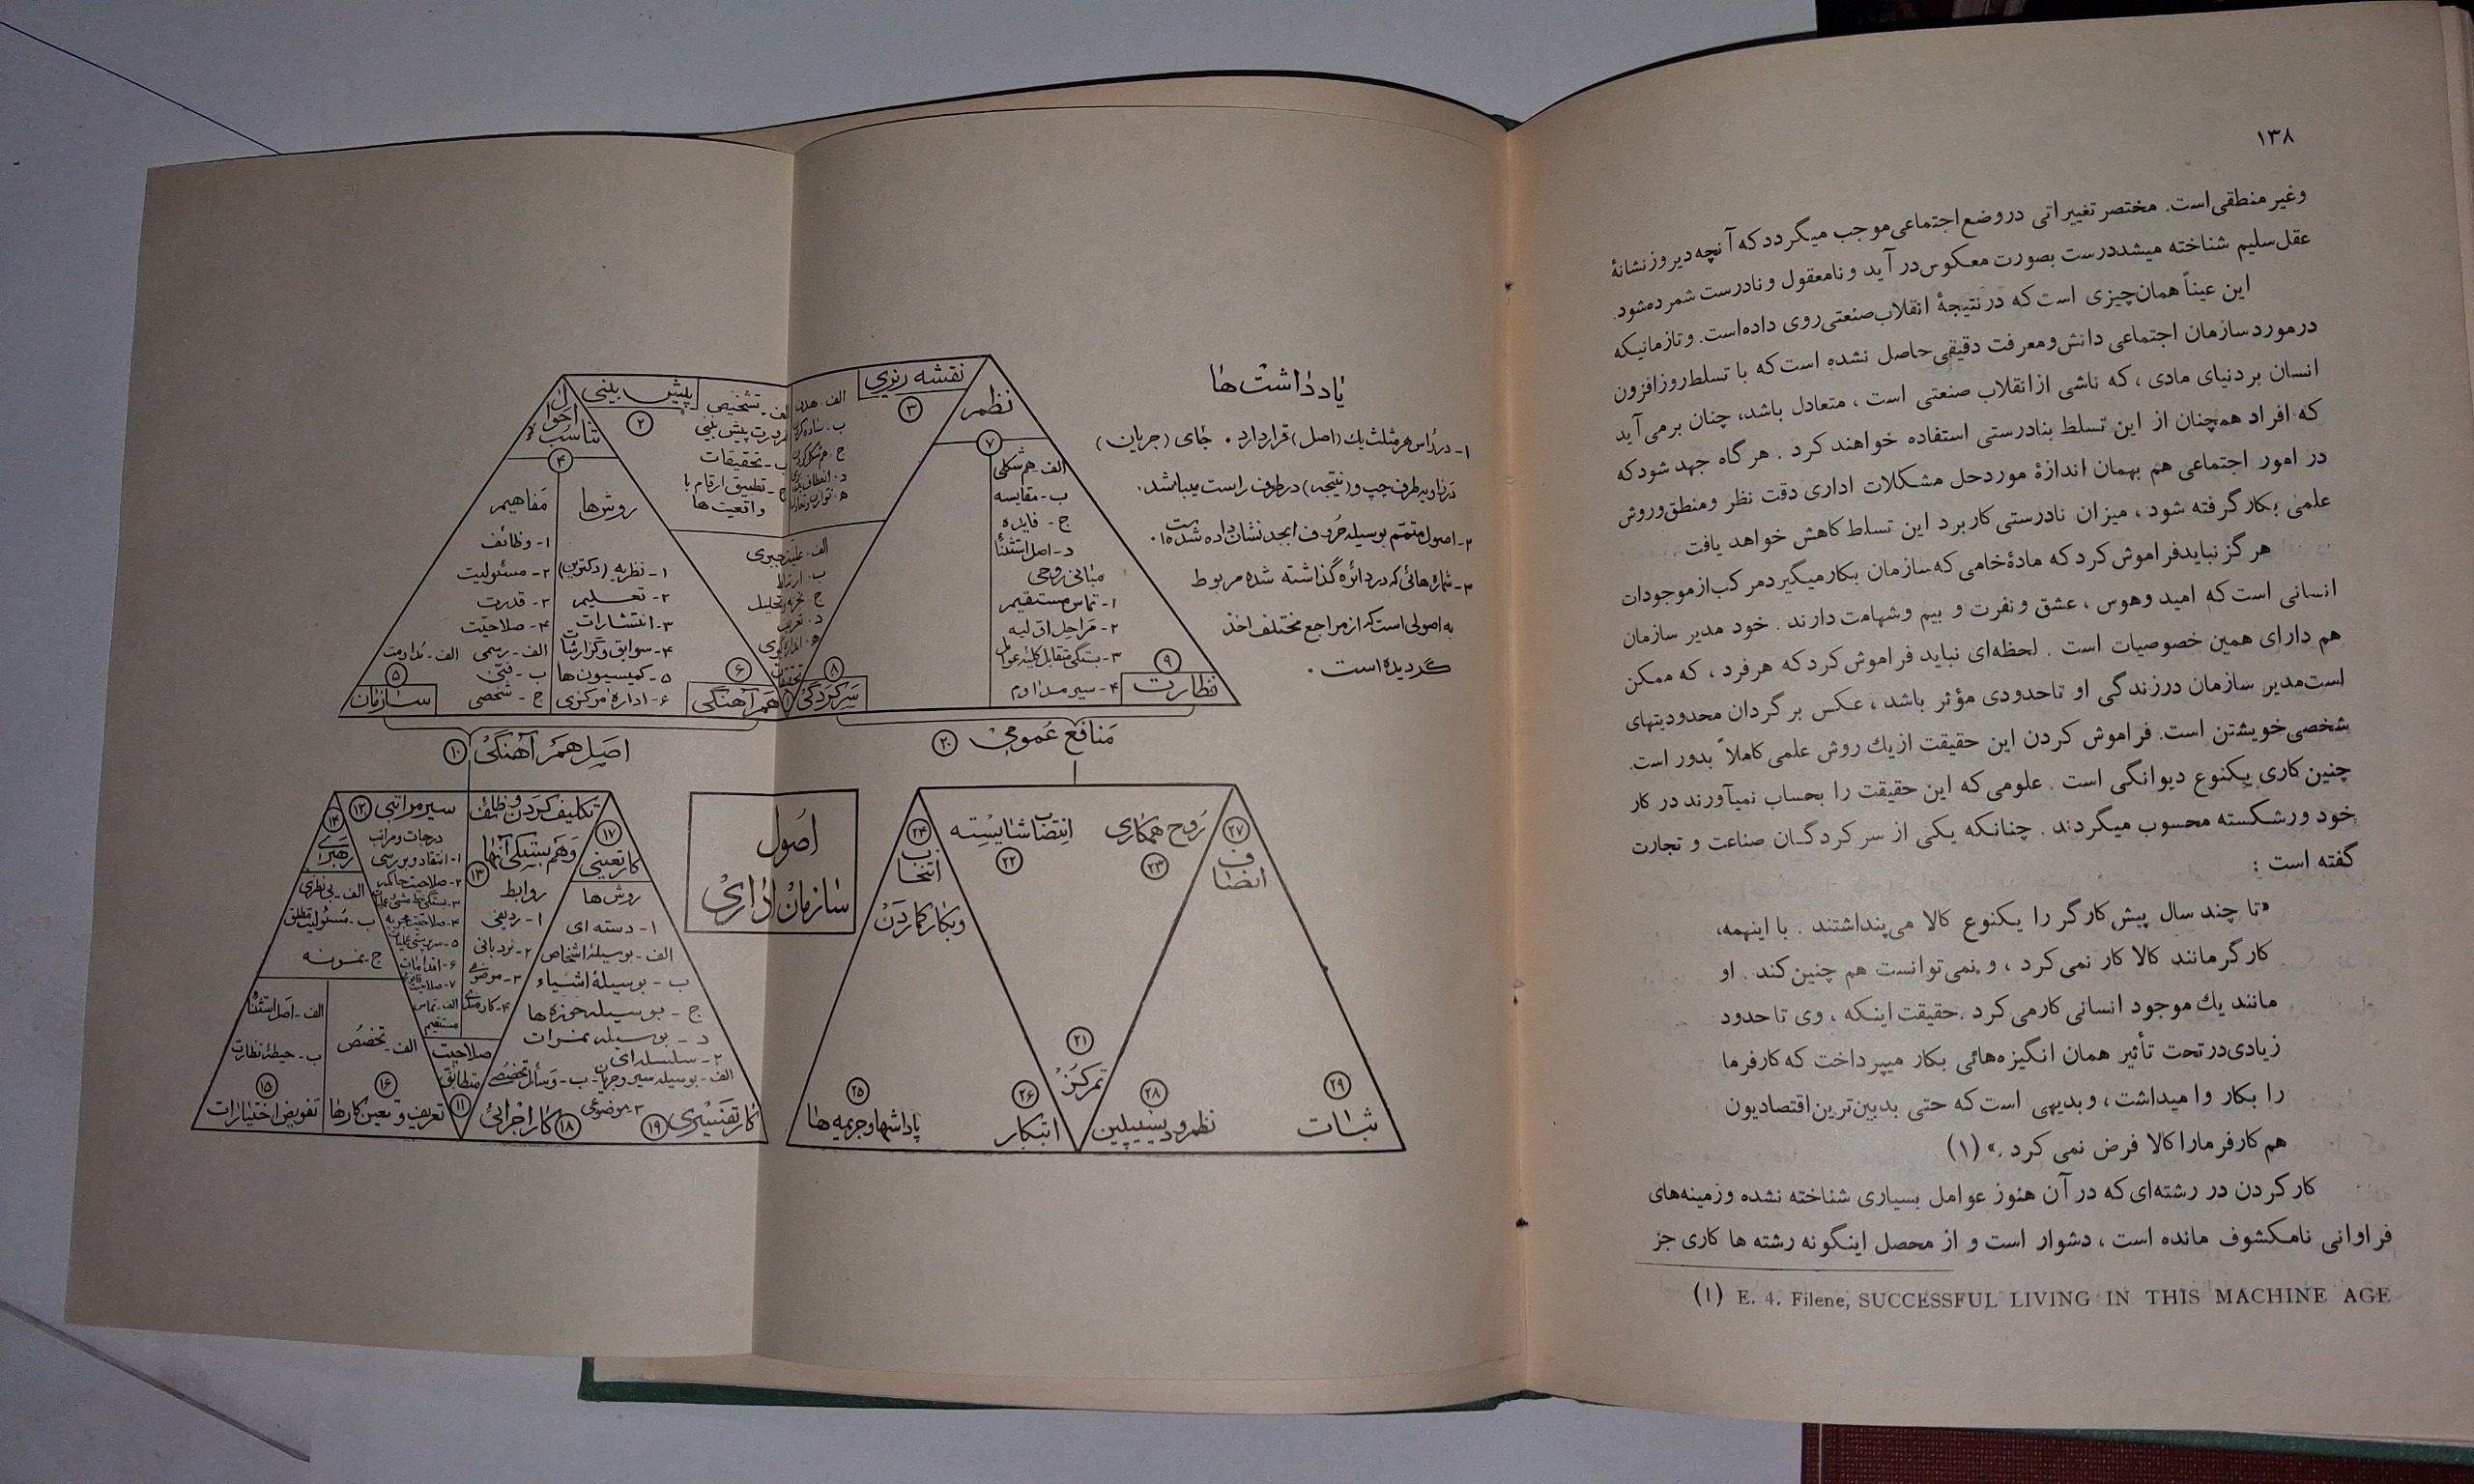 ۱۳۸
وغیر منطقی است. مختصر تغییراتی دروضع اجتماعی موجب میگردد که آنچه دیروز نشانهٔ
عقل سلیم شناخته میشد درست بصورت معکوس در آید و نامعقول و نادرست شمرده شود.
این عیناً همان چیزی است که در نتیجهٔ انقلاب صنعتی روی داده است. و تا زمانیکه
درمورد سازمان اجتماعی دانش ومعرفت دقیقی حاصل نشده است که با تسلط روزافزون
انسان بر دنیای مادی ، که ناشی از انقلاب صنعتی است ، متعادل باشد، چنان برمی آید
که افراد همچنان از این تسلط بنادرستی استفاده خواهند کرد . هر گاه جهد شود که
در امور اجتماعی هم بهمان اندازهٔ مورد حل مشکلات اداری دقت نظر ومنطق وروش
علمی بکار گرفته شود ، میزان نادرستی کاربرد این تسلط کاهش خواهد یافت .
هر گز نباید فراموش کرد که مادهٔ خامی که سازمان بکار میگیرد مرکب از موجودات
انسانی است که امید وهوس ، عشق و نفرت و بیم وشهامت دارند . خود مدیر سازمان
هم دارای همین خصوصیات است . لحظه‌ای نباید فراموش کرد که هر فرد ، که ممکن
است مدیر سازمان درزندگی او تاحدودی مؤثر باشد ، عکس برگردان محدودیتهای
شخصی خویشتن است. فراموش کردن این حقیقت از یك روش علمی کاملاً بدور است.
چنین کاری یکنوع دیوانگی است . علومی که این حقیقت را بحساب نمیآورند در کار
خود ورشکسته محسوب میگردند . چنانکه یکی از سر کردگان صناعت و تجارت
گفته است :
«تا چند سال پیش کارگر را یکنوع کالا می‌پنداشتند . با اینهمه،
کارگر مانند کالا کار نمی کرد ، و نمی توانست هم چنین کند . او
مانند یك موجود انسانی کار می کرد . حقیقت اینکه ، وی تا حدود
زیادی در تحت تأثیر همان انگیزه‌هائی بکار میپرداخت که کارفرما
را بکار وا میداشت ، وبدیهی است که حتی بدبین ترین اقتصادیون
هم کارفرما را کالا فرض نمی کرد .» (۱)
کار کردن در رشته‌ای که در آن هنوز عوامل بسیاری شناخته نشده وزمینه‌های
فراوانی نامکشوف مانده است ، دشوار است و از محصل اینگونه رشته ها کاری جز
(۱) E. 4. Filene, SUCCESSFUL LIVING IN THIS MACHINE AGE
یادداشت‌ها
۱- در رأس هر مثلث یك (اصل) قرار دارد . جای (جریان)
در زاویه طرف چپ و (نتیجه) در طرف راست میباشد .
۲- اصول متمم بوسیله حروف ابجد نشان داده شده است .
۳- شماره هائی که در دائره گذاشته شده مربوط
به اصولی است که از مراجع مختلف اخذ
گردیده است .
نظم
۷
الف- هم شکلی
ب- مقایسه
ج- فایده
د- اصل استثنأ
مبانی روحی
۱- تماس مستقیم
۲- مراحل اولیه
۳- بستگی متقابل کلیه عوامل
۴- سیر مداوم
۹
نظارت
نقشه ریزی
۳
الف- هدف
۸
سرکردگی
پیش بینی
۲
الف- تشخیص
قدرت پیش بینی
ب- تحقیقات
ج- تطبیق ارقام با
واقعیت ها
ب- ارتباط
ج- تجزیه و تحلیل
۶
هم آهنگی
۱
تناسب
۴
روش‌ها
۱- نظریه (دکترین)
۲- تعلیم
۳- انتشارات
۴- سوابق و گزارشات
۵- کمیسیون ها
۶- اداره مرکزی
مفاهیم
۱- وظائف
۲- مسئولیت
۳- قدرت
۴- صلاحیت
الف- رسمی
ب- فنی
ج- شخصی
۵
سازمان
منافع عمومی ۲۰
اصل هم آهنگی ۱۰
اصول
سازمان اداری
۲۷
انصاف
روح همکاری
۲۳
انتصاب شایسته
۲۲
۲۴
انتخاب
و بکار گماردن
۲۱
تمرکز
۲۹
ثبات
۲۸
نظم و دیسیپلین
۲۶
ابتکار
۲۵
پاداشها و جریمه ها
تکلیف کردن وظائف
و هم بستگی آنها
۱۳
روابط
۱- ردیفی
۲- نردبانی
۳- موضوعی
۱۷
کار تعینی
روش ها
۱- دسته ای
الف- بوسیله اشخاص
ب- بوسیله اشیاء
ج- بوسیله حوزه ها
د- بوسیله نمرات
۲- سلسله ای
الف- بوسیله سیر و جریان
ب- وسائل تخصصی
۳- موضوعی
۱۹
کار تفسیری
۱۸
کار اجرائی
سیر مراتبی ۱۲
درجات و مراتب
۱- انتقاد و بررسی
۱۴
رهبری
الف- بی نظری
ب- مسئولیت مطلق
ج- نمونه
صلاحیت
متطابق
۱۱
الف- تخصص
۱۶
تعریف و تعیین کارها
الف- اصل استثنأ
ب- حیطه نظارت
۱۵
تفویض اختیارات